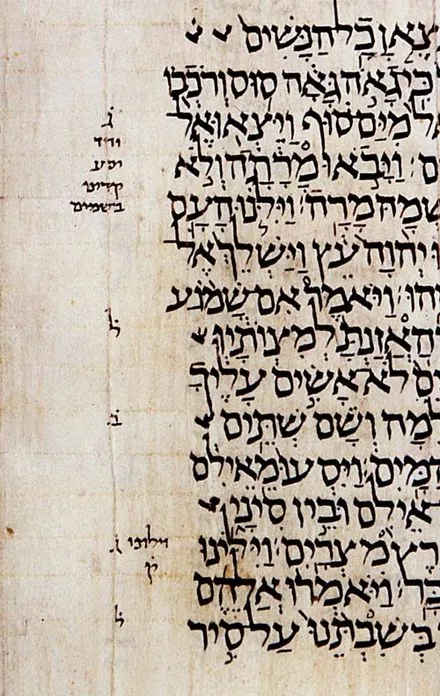 צֶאןָ כָל הַנָּשִׁים
כִּי גָאֹה גָּאָה סוּס וְרֹכְבוֹ
ל מִיַּם סוּף וַיֵּצְאוּ אֶל
ם׃ וַיָּבֹאוּ מָרָתָה וְלֹא
שְׁמָהּ מָרָה׃ וַיִּלֹּנוּ הָעָם
ו יְהוָה עֵץ וַיַּשְׁלֵךְ אֶל
הוּ׃ וַיֹּאמֶר אִם שָׁמוֹעַ
הַאֲזַנְתָּ לְמִצְוֺתָיו
ים לֹא אָשִׂים עָלֶיךָ
לִמָה וְשָׁם שְׁתֵּים
הַמָּיִם׃ וַיִּסְעוּ מֵאֵילִם
אֵילִם וּבֵין סִינָי
רֶץ מִצְרָיִם׃ וַיִּלִּינוּ
בָּר׃ וַיֹּאמְרוּ אֲלֵהֶם
בְּשִׁבְתֵּנוּ עַל סִיר
ג
יסע
קדים
בשמים
ל
ב
ג וילונו
ק
ל